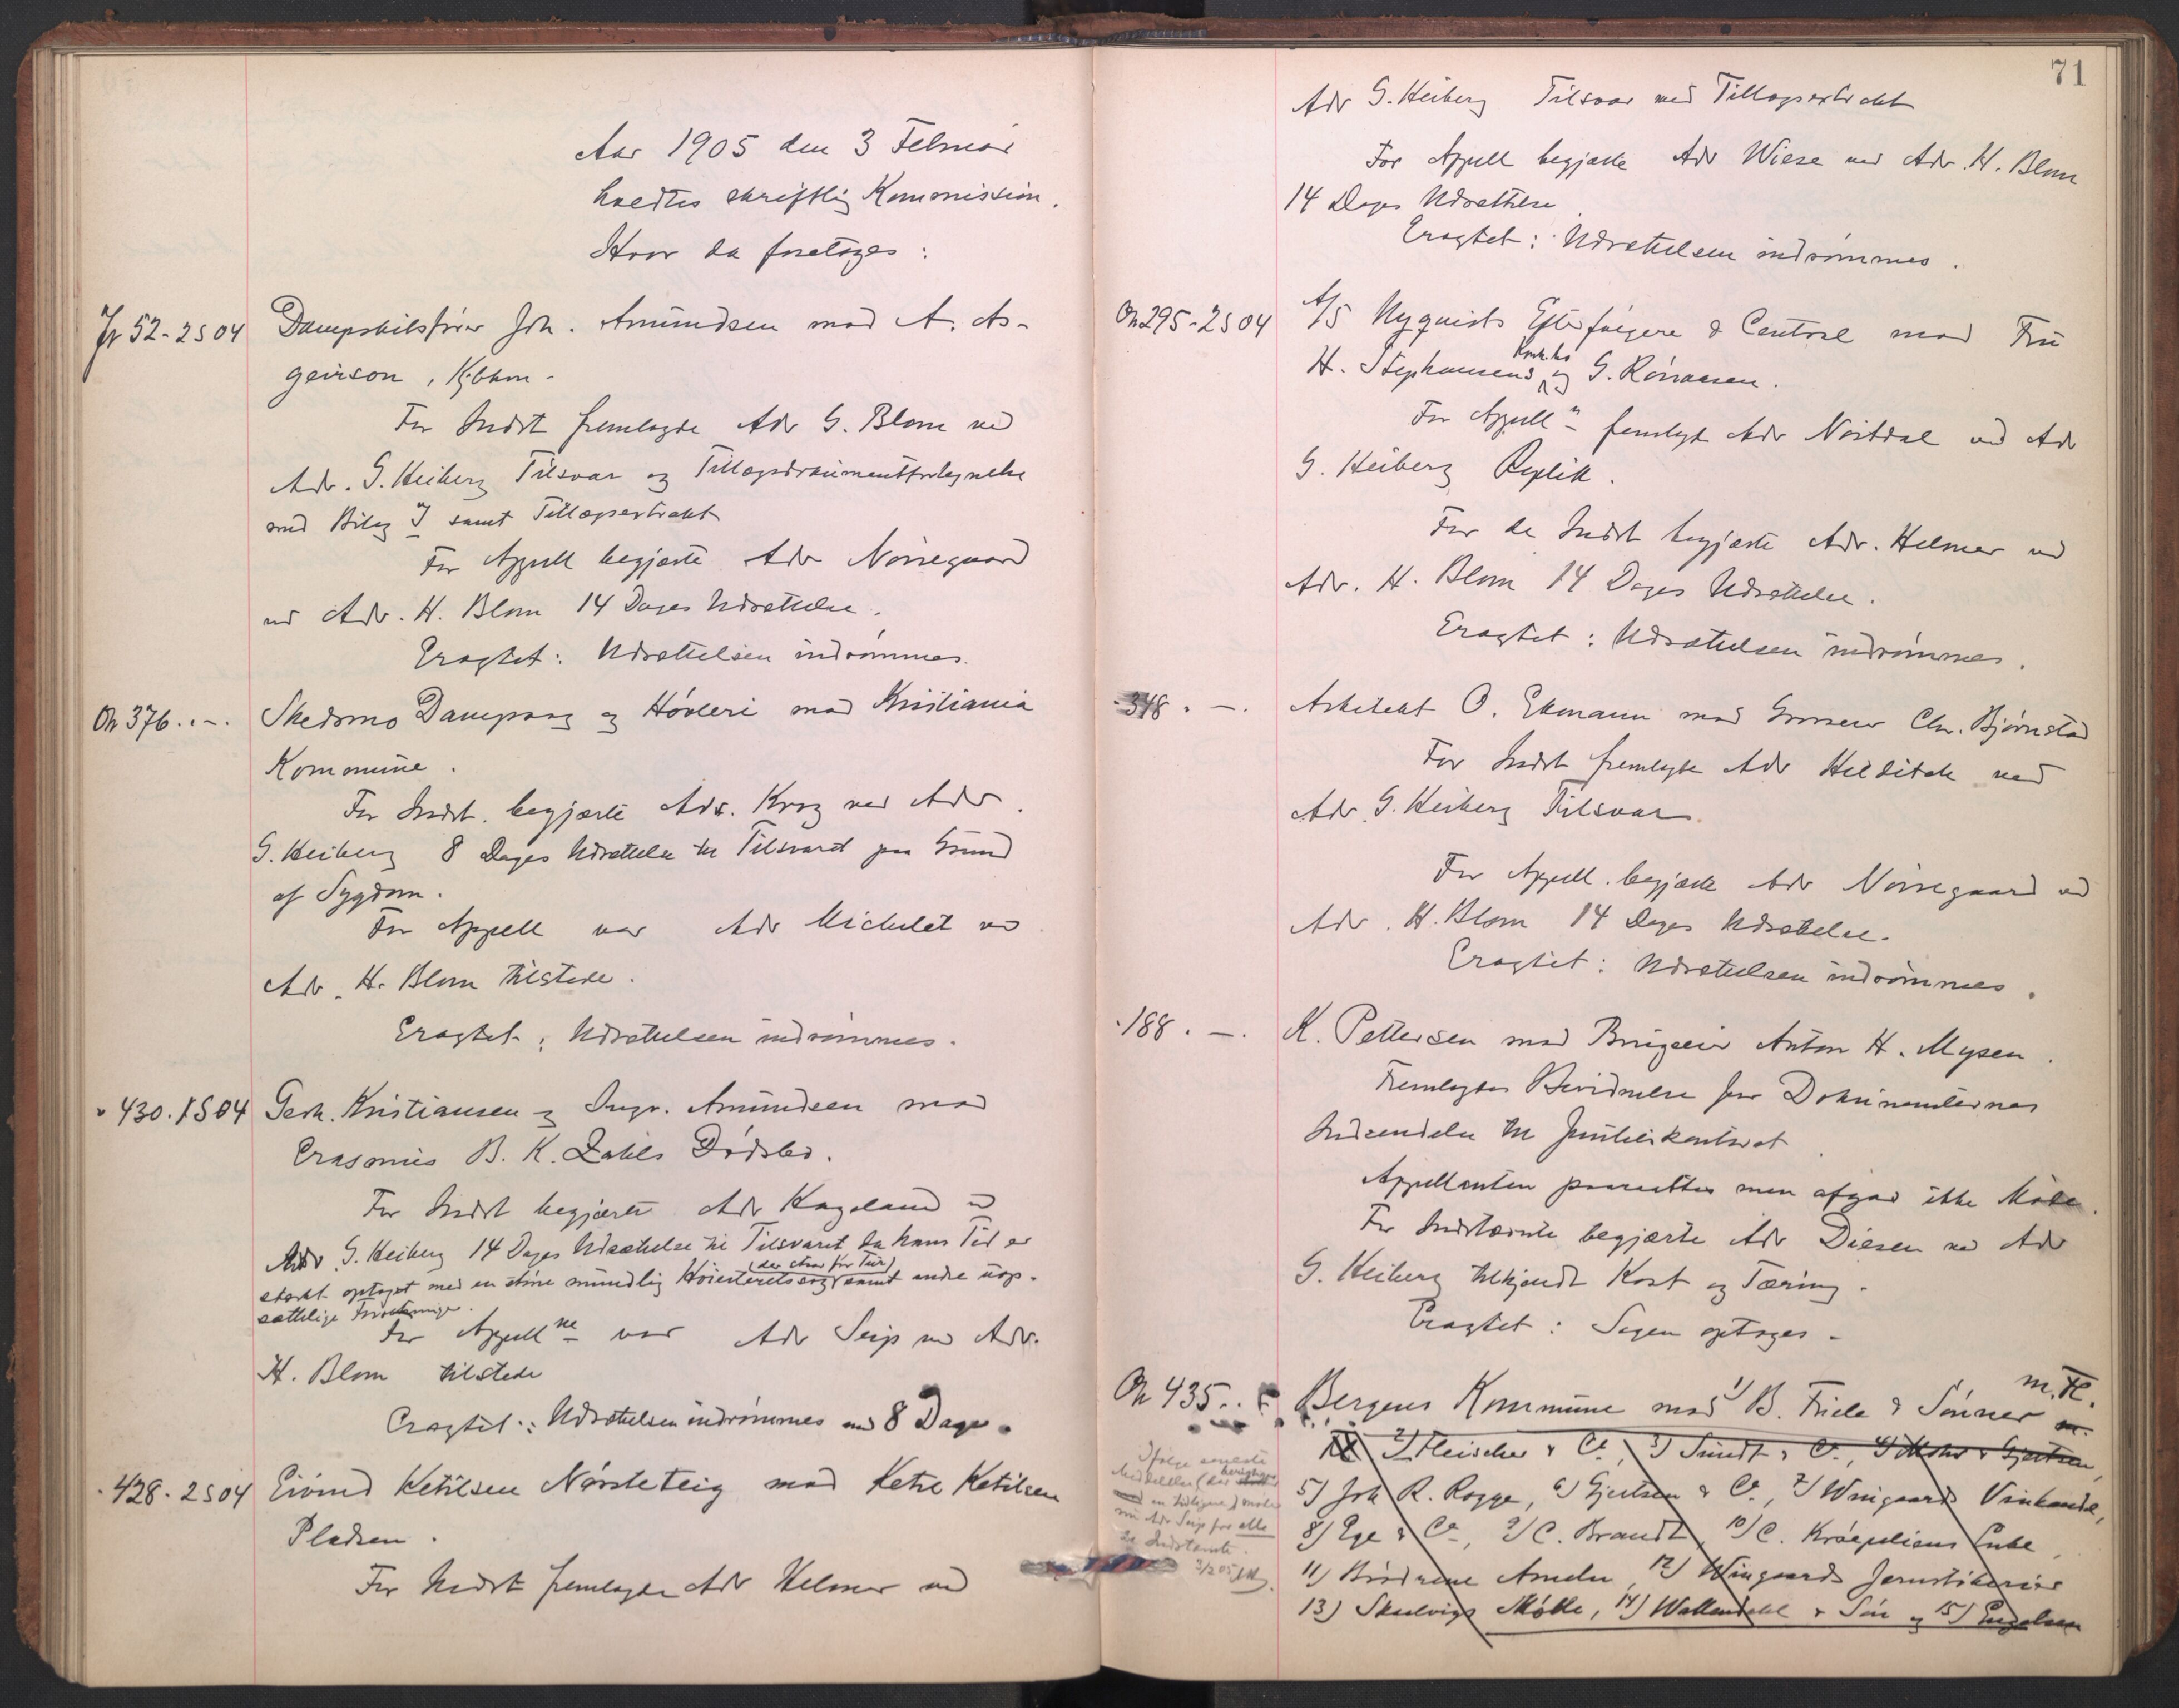 Aar 1905 den 3 Februar
holdtes skriftlig Kommission.
Hvor da foretoges:
Jr 52-2S04
Dampskibsfører Joh. Amundsen mod A. As-
geirson, Kjbhvn.
For Indst fremlagde Adv G. Blom ved
Adv. G. Heiberg Tilsvar og Tillægsdokumentfortegnelse
med Bilag I samt Tillægsextrakt
For Appell begjærte Adv Nørregaard
ved Adv. H. Blom 14 Dages Udsættelse.
Eragtet: Udsættelsen indrømmes.
On 376. -.
Skedsmo Dampsag og Høvleri mod Kristiania
Kommune.
For Indst. begjærte Adv. Krag ved Adv.
G. Heiberg 8 Dages Udsættelse til Tilsvaret paa Grund
af Sygdom.
For Appell var Adv Michelet ved
Adv. H. Blom tilstede.
Eragtet: Udsættelsen indrømmes.
" 430. 1S04
Gerh. Kristiansen og Ingv. Amundsen mod
Erasmus B. K. Zahls Dødsbo.
For Indst begjærte Adv Kageland ved
Adv. G. Heiberg 14 Dages Udsættelse til Tilsvaret da hans Tid er
stærkt optaget med en større mundlig Høiesteretssag (der staar for Tur) samt andre uop-
sættelige Forretninger.
For Appell ne var Adv Seip ved Adv.
H. Blom tilstede
Eragtet: Udsættelsen indrømmes med 8 Dage.
. 428. 2S04
Eivind Ketilsen Nørsteteig mod Ketil Ketilsen
Pladsen.
For Indst fremlagde Adv Helmer ved
71
Adv G. Heiberg Tilsvar med Tillægsextrakt
For Appell begjærte Adv Wiese ved Adv. H. Blom
14 Dages Udsættelse
Eragtet: Udsættelsen indrømmes.
On 295-2S04
A/S Nyquists Efterfølgere & Central mod Fru
H. Stephansens Konk.bo og G. Rønaasen.
For Appell n fremlagde Adv Nordal ved Adv
G. Heiberg Replik.
For de Indst begjærte Adv. Helmer ved
Adv. H. Blom 14 Dages Udsættelse.
Eragtet: Udsættelsen indrømmes.
. 348. -.
Arkitekt O. Ekmann mod Grosserer Chr. Bjørnstad
For Indst fremlagde Adv Hilditch ved
Adv. G. Heiberg Tilsvar.
For Appell. begjærte Adv Nørregaard ved
Adv. H. Blom 14 Dages Udsættelse.
Eragtet: Udsættelsen indrømmes.
. 188. -.
K. Pettersen mod Brugseier Anton H. Mysen.
Fremlagdes Bevidnelse for Dokumenternes
Indsendelse til Justitskontoret
Appellanten paaraabtes men afgav ikke Møde.
For Indstævnte begjærte Adv Diesen ved Adv
G. Heiberg tilkjendt Kost og Tæring.
Eragtet: Sagen optages.
On 435..
Bergens Kommune mod 1) B. Friele & Sønner m. Fl.
2) Fleischer & Co, 3) Sundt & Co, 4) Mohr & Gjertsen,
5) Joh R. Rogge, 6) Gjertsen & Co, 7) Wingaards Vinhandel,
8) Ege & Co, 9) C. Brandt, 10) C. Kræpeliens Enke,
11) Brødrene Ameln, 12) Wingaards Jernstøberier
13) Skaalvigs Mølle, 14) Wallendahl & Søn og 15) Engelsen
Ifølge seneste
Meddelelse (der berigtiger
en tidligere) møder
nu Adv Seip for alle
de Indstævnte.
3/2 05